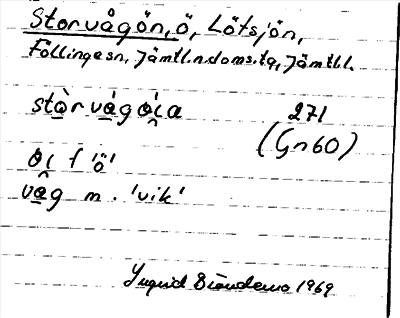 Storvågön, ö, Lötsjön,
Föllinge sn, Jämtl. n. doms. tg, Jämtl. l.
stòrvágǿi̯a 271
(Gn 60)
øi̯ f 'ö'
våg m. 'vik'
Ingrid 1969